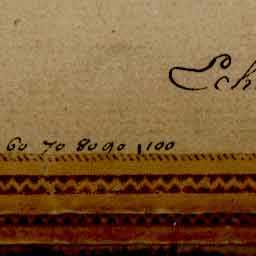 Ech
60 70 80 90 100